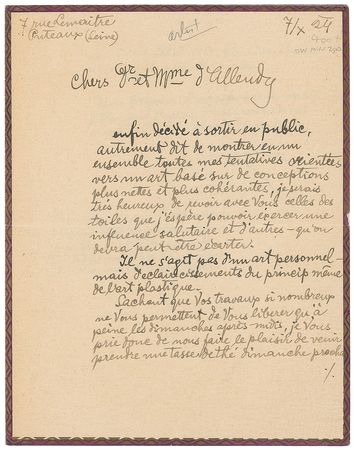 7 rue Lemaître
Puteaux (Seine)
7/X 24
artist
Chers Dr et Mme d'Allendy
enfin décidé à sortir en public,
autrement dit de montrer en un
ensemble toutes mes tentatives orientées
vers un art basé sur de conceptions
plus nettes et plus cohérantes, je serais
très heureux de revoir avec Vous celles des
toiles que j'espère pouvoir exercer une
influence salutaire et d'autres - qu'on
devra peut être écarter.
Il ne s'agit pas d'un art personnel -
mais d'éclaircissements du princip même
de l'art plastique.
Sachant que Vos travaux si nombreux
ne Vous permettent de Vous liberer qu'à
peine les dimanches après-midis, je Vous
prie donc de nous faire le plaisir de venir
prendre une tasse de thé dimanche procha
./.